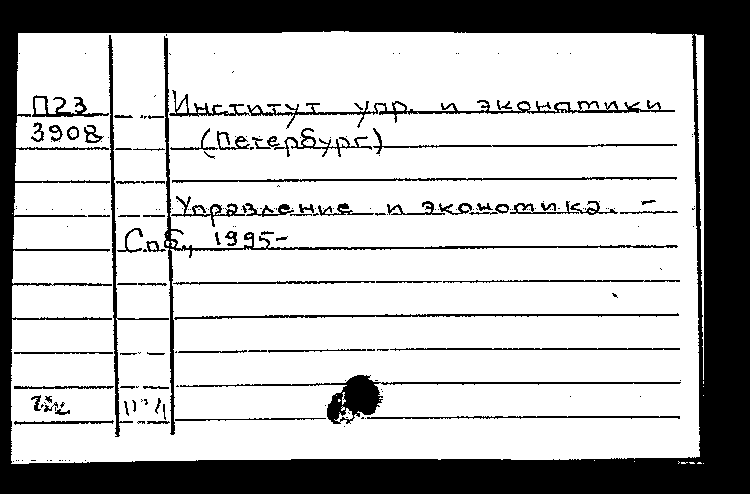 П23 Институт упр. и экономики
3908 (Петербург)
Управление и экономика. -
Спб., 1995-